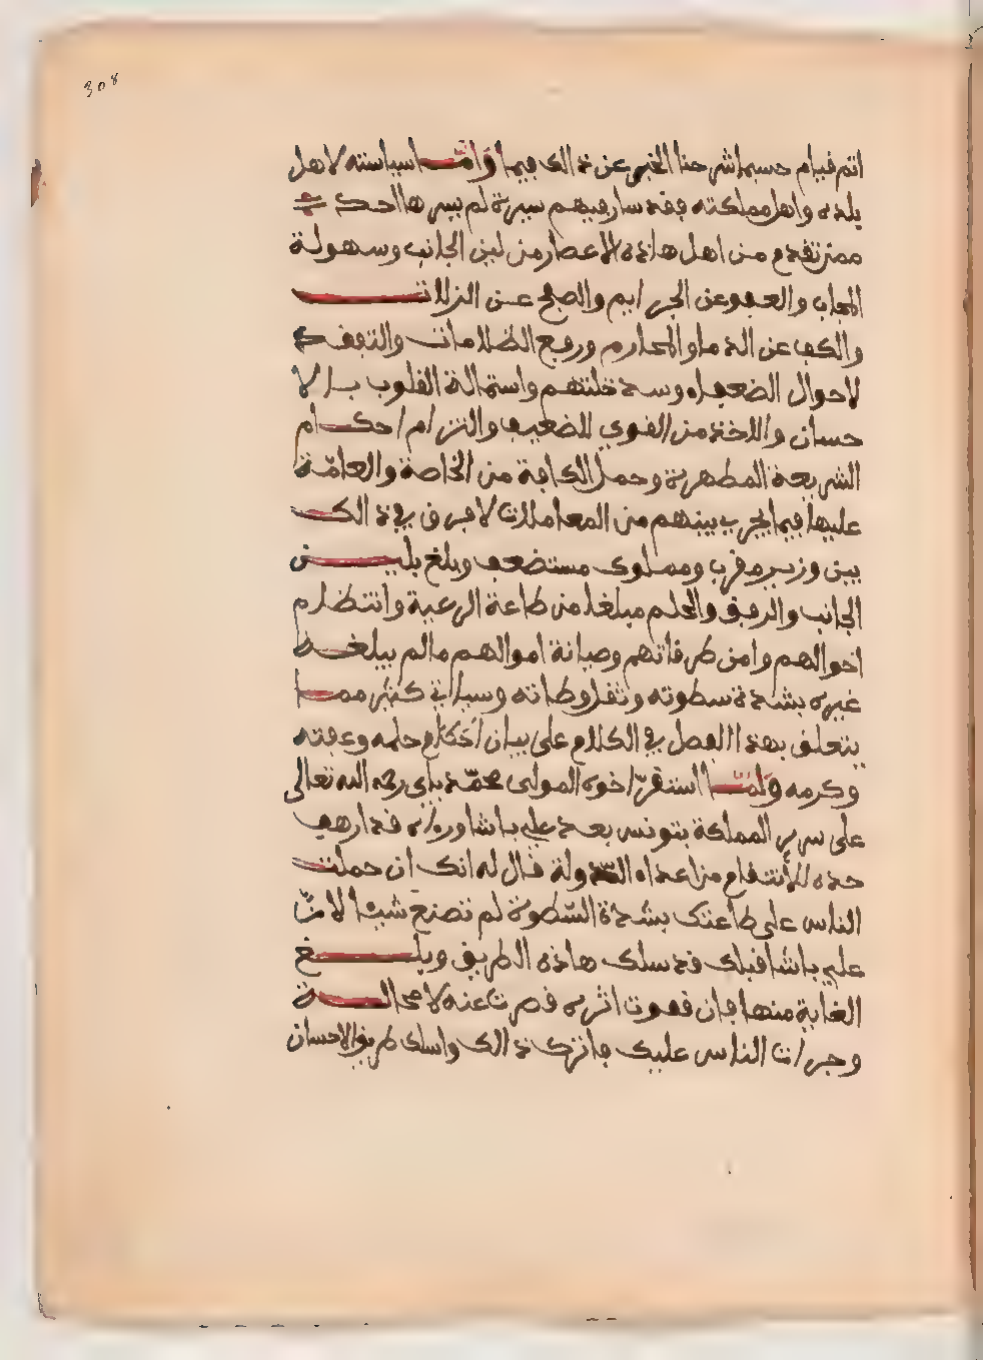 308
اتم قيام حسبما شرحنا الخبر عن ذالك فيما وامّا سياسته لاهل
بلده واهل مملكته فقد سار فيهم سيرة لم يسرها احد
ممن تقدم من اهل هاذه الاعصار من لين الجانب وسهولة
الحجاب والعفو عن الجرايم والصفح عن الزلات
والكف عن الدما والمحارم ورفع الظلامات والتفقد
لاحوال الضعفاء وسد خلتهم واستمالة القلوب بالا
حسان والاخذ من القوي للضعيف والتزام احكام
الشريعة المطهرة وحمل الكافة من الخاصة والعامّة
عليها فيما يجري بينهم من المعاملات لا فرق في ذالك
بين وزير مقرب ومملوك مستضعف وبلغ بلين
الجانب والرفق والحلم مبلغا من طاعة الرعية وانتظام
احوالهم وامن طرقاتهم وصيانة اموالهم ما لم يبلغه
غيره بشدة سطوته وثقل وطاته وسياتي كثير مما
يتعلق بهذا الفصل في الكلام على بيان احكام حلمه وعفته
وكرمه ولمّا استقرّ اخوه المولى محمّد باي رحمه الله تعالى
على سرير المملكة بتونس بعد علي باشا وراى قد ارهف
حده للانتقام من اعداء الدّولة قال له انك ان حملت
الناس على طاعتك بشدة السّطوة لم تصنع شيئا لانّ
علي باشا قبلك قد سلك هاذه الطريق وبلغ
الغاية منها فان قفوت اثره قصرت عنه لا محالة
وجرات الناس عليك فاترك ذالك واسلك طريق الاحسان